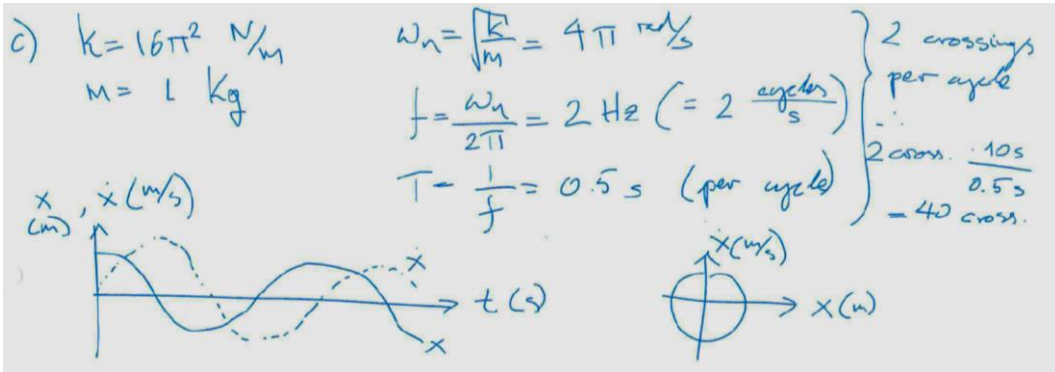 c) k = 16π² N/m
m = 1 Kg
ωn = √(k/m) = 4π rad/s
f = ωn/2π = 2 Hz (= 2 cycles/s)
T = 1/f = 0.5 s (per cycle)
2 crossings
per cycle
∴
2 cross. · 10s/0.5s
= 40 cross.
x (m), ẋ (m/s)
ẋ
t (s)
x
ẋ (m/s)
x (m)